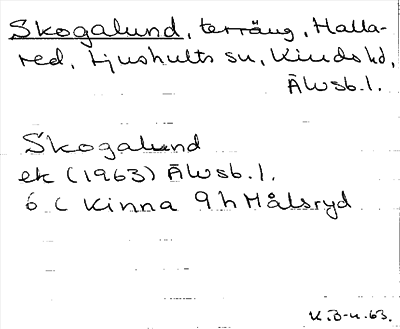 Skogalund, terräng, Halla-
red, Ljushults sn, Kinds hd,
Älvsb. l.
Skogalund
ek (1963) Älvsb. l.
6 C Kinna 9 h Målsryd
K.B-n. 63.